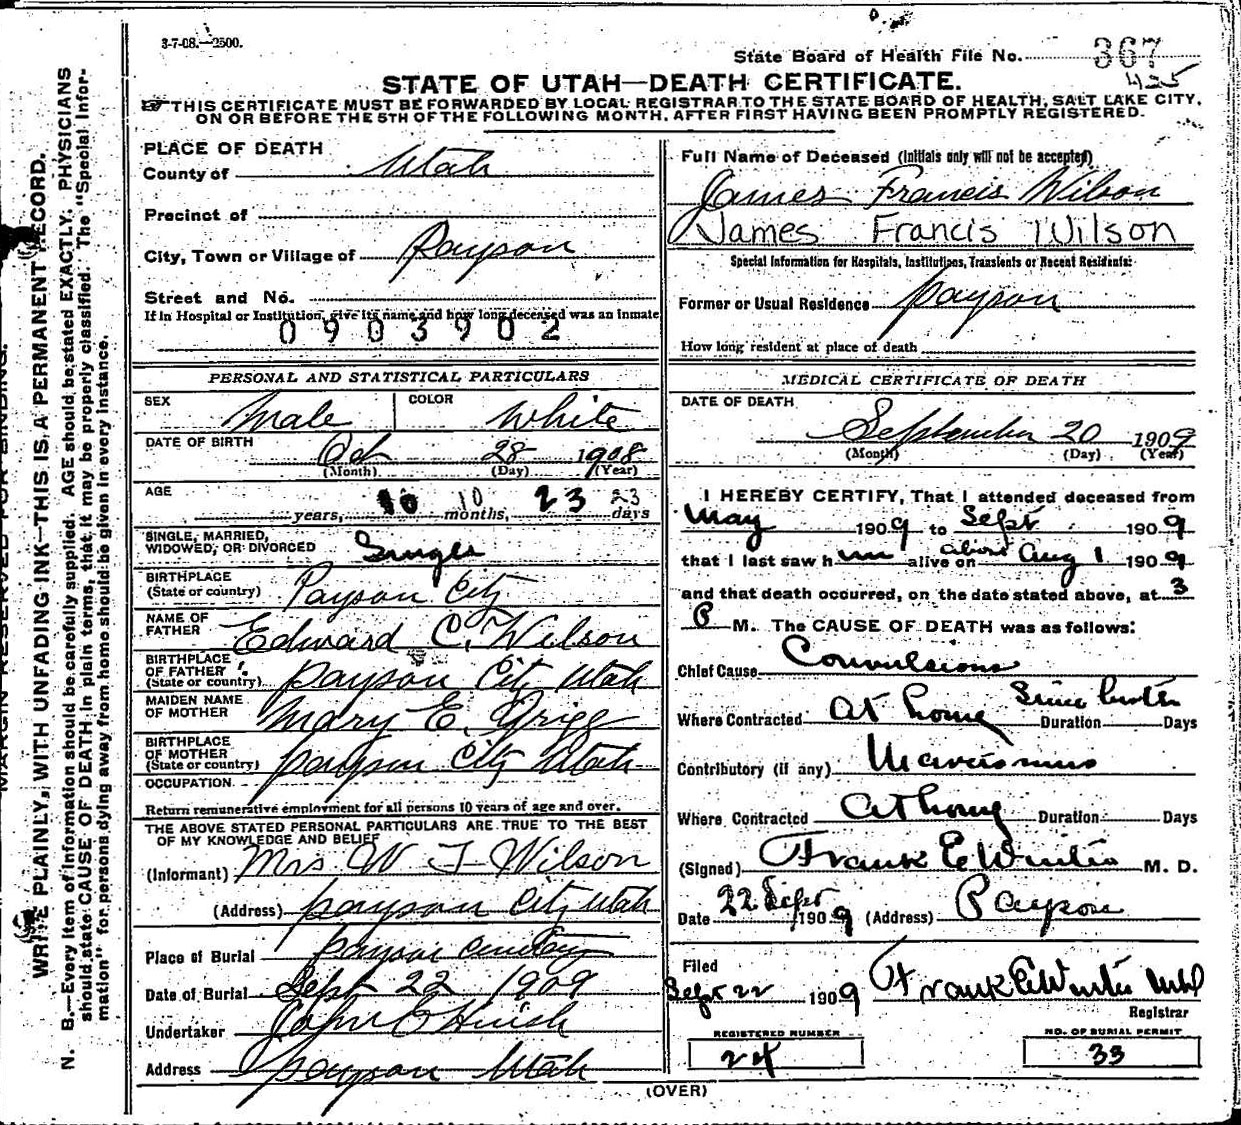 3-7-08.—2500.
State Board of Health File No. 367
425
STATE OF UTAH—DEATH CERTIFICATE.
THIS CERTIFICATE MUST BE FORWARDED BY LOCAL REGISTRAR TO THE STATE BOARD OF HEALTH, SALT LAKE CITY,
ON OR BEFORE THE 5TH OF THE FOLLOWING MONTH, AFTER FIRST HAVING BEEN PROMPTLY REGISTERED.
MARGIN RESERVED FOR BINDING.
WRITE PLAINLY, WITH UNFADING INK—THIS IS A PERMANENT RECORD.
N. B.—Every item of information should be carefully supplied. AGE should be stated EXACTLY. PHYSICIANS
should state CAUSE OF DEATH in plain terms, that it may be properly classified. The "Special Infor-
mation" for persons dying away from home should be given in every instance.
PLACE OF DEATH
County of Utah
Precinct of
City, Town or Village of Payson
Street and No.
If in Hospital or Institution, give its name and how long deceased was an inmate
0903902
PERSONAL AND STATISTICAL PARTICULARS
SEX Male COLOR White
DATE OF BIRTH
Oct 28 1908
(Month) (Day) (Year)
AGE
years, 10 10 months, 23 23 days
SINGLE, MARRIED,
WIDOWED, OR DIVORCED Single
BIRTHPLACE
(State or country) Payson City
NAME OF
FATHER Edward C. Wilson
BIRTHPLACE
OF FATHER
(State or country) Payson City Utah
MAIDEN NAME
OF MOTHER Mary E. Grigg
BIRTHPLACE
OF MOTHER
(State or country) Payson City Utah
OCCUPATION
Return remunerative employment for all persons 10 years of age and over.
THE ABOVE STATED PERSONAL PARTICULARS ARE TRUE TO THE BEST
OF MY KNOWLEDGE AND BELIEF
(Informant) Mrs W J Wilson
(Address) Payson City Utah
Place of Burial Payson Cemetery
Date of Burial Sept 22 1909
Undertaker
Address Payson Utah
Full Name of Deceased (Initials only will not be accepted)
James Francis Wilson
James Francis Wilson
Special Information for Hospitals, Institutions, Transients or Recent Residents:
Former or Usual Residence Payson
How long resident at place of death
MEDICAL CERTIFICATE OF DEATH
DATE OF DEATH
September 20 1909
(Month) (Day) (Year)
I HEREBY CERTIFY, That I attended deceased from
May 1909 to Sept 1909
that I last saw h im alive on about Aug 1 1909
and that death occurred, on the date stated above, at 3
P M. The CAUSE OF DEATH was as follows:
Chief Cause Convulsions
Since birth
Where Contracted At home Duration Days
Contributory (if any)
Where Contracted At home Duration Days
(Signed) Frank E Winters M. D.
Date 22 Sept 1909 (Address) Payson
Filed
Sept 22 1909 Frank E Winters MD
Registrar
REGISTERED NUMBER
24
NO. OF BURIAL PERMIT
33
(OVER)